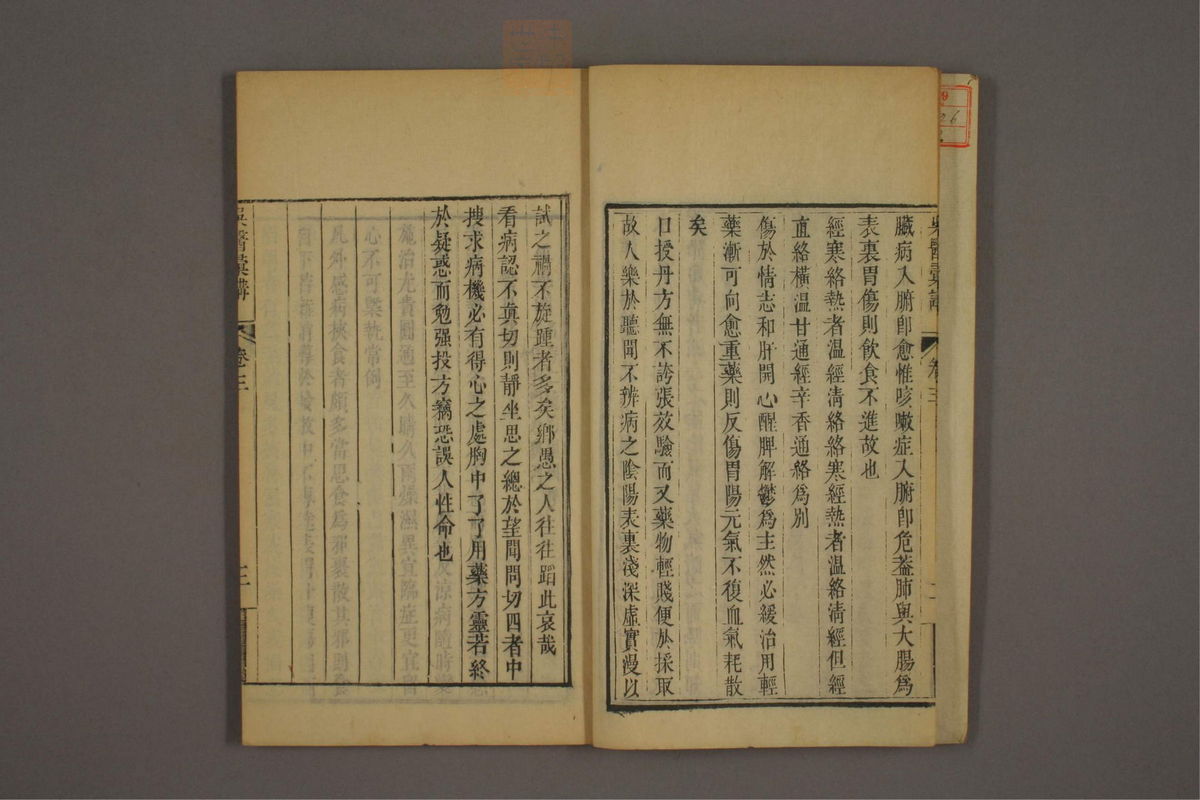 臟病入腑卽愈惟咳嗽症入腑卽危葢肺與大腸爲
表裏胃傷則飲食不進故也
經寒絡熱者温經淸絡絡寒經熱者温絡淸經但經
直絡橫温甘通經辛香通絡爲別
傷於情志和肝開心醒脾解鬱爲主然必緩治用輕
藥漸可向愈重藥則反傷胃陽元氣不復血氣耗散
矣
口授丹方無不誇張效驗而又藥物輕賤便於採取
故人樂於聽聞不辨病之陰陽表裏淺深虛實漫以
試之禍不旋踵者多矣鄉愚之人往往蹈此哀哉
看病認不眞切則靜坐思之總於望聞問切四者中
搜求病機必有得心之處胸中了了用藥方靈若終
於疑惑而勉强投方竊恐誤人性命也
吳醫彙講
卷三
三